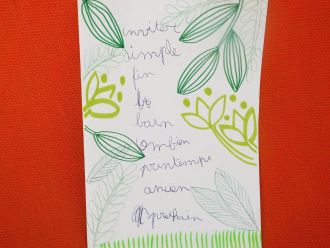 inviter
simple
fin
bain
combien
printemps
ancien
prochain